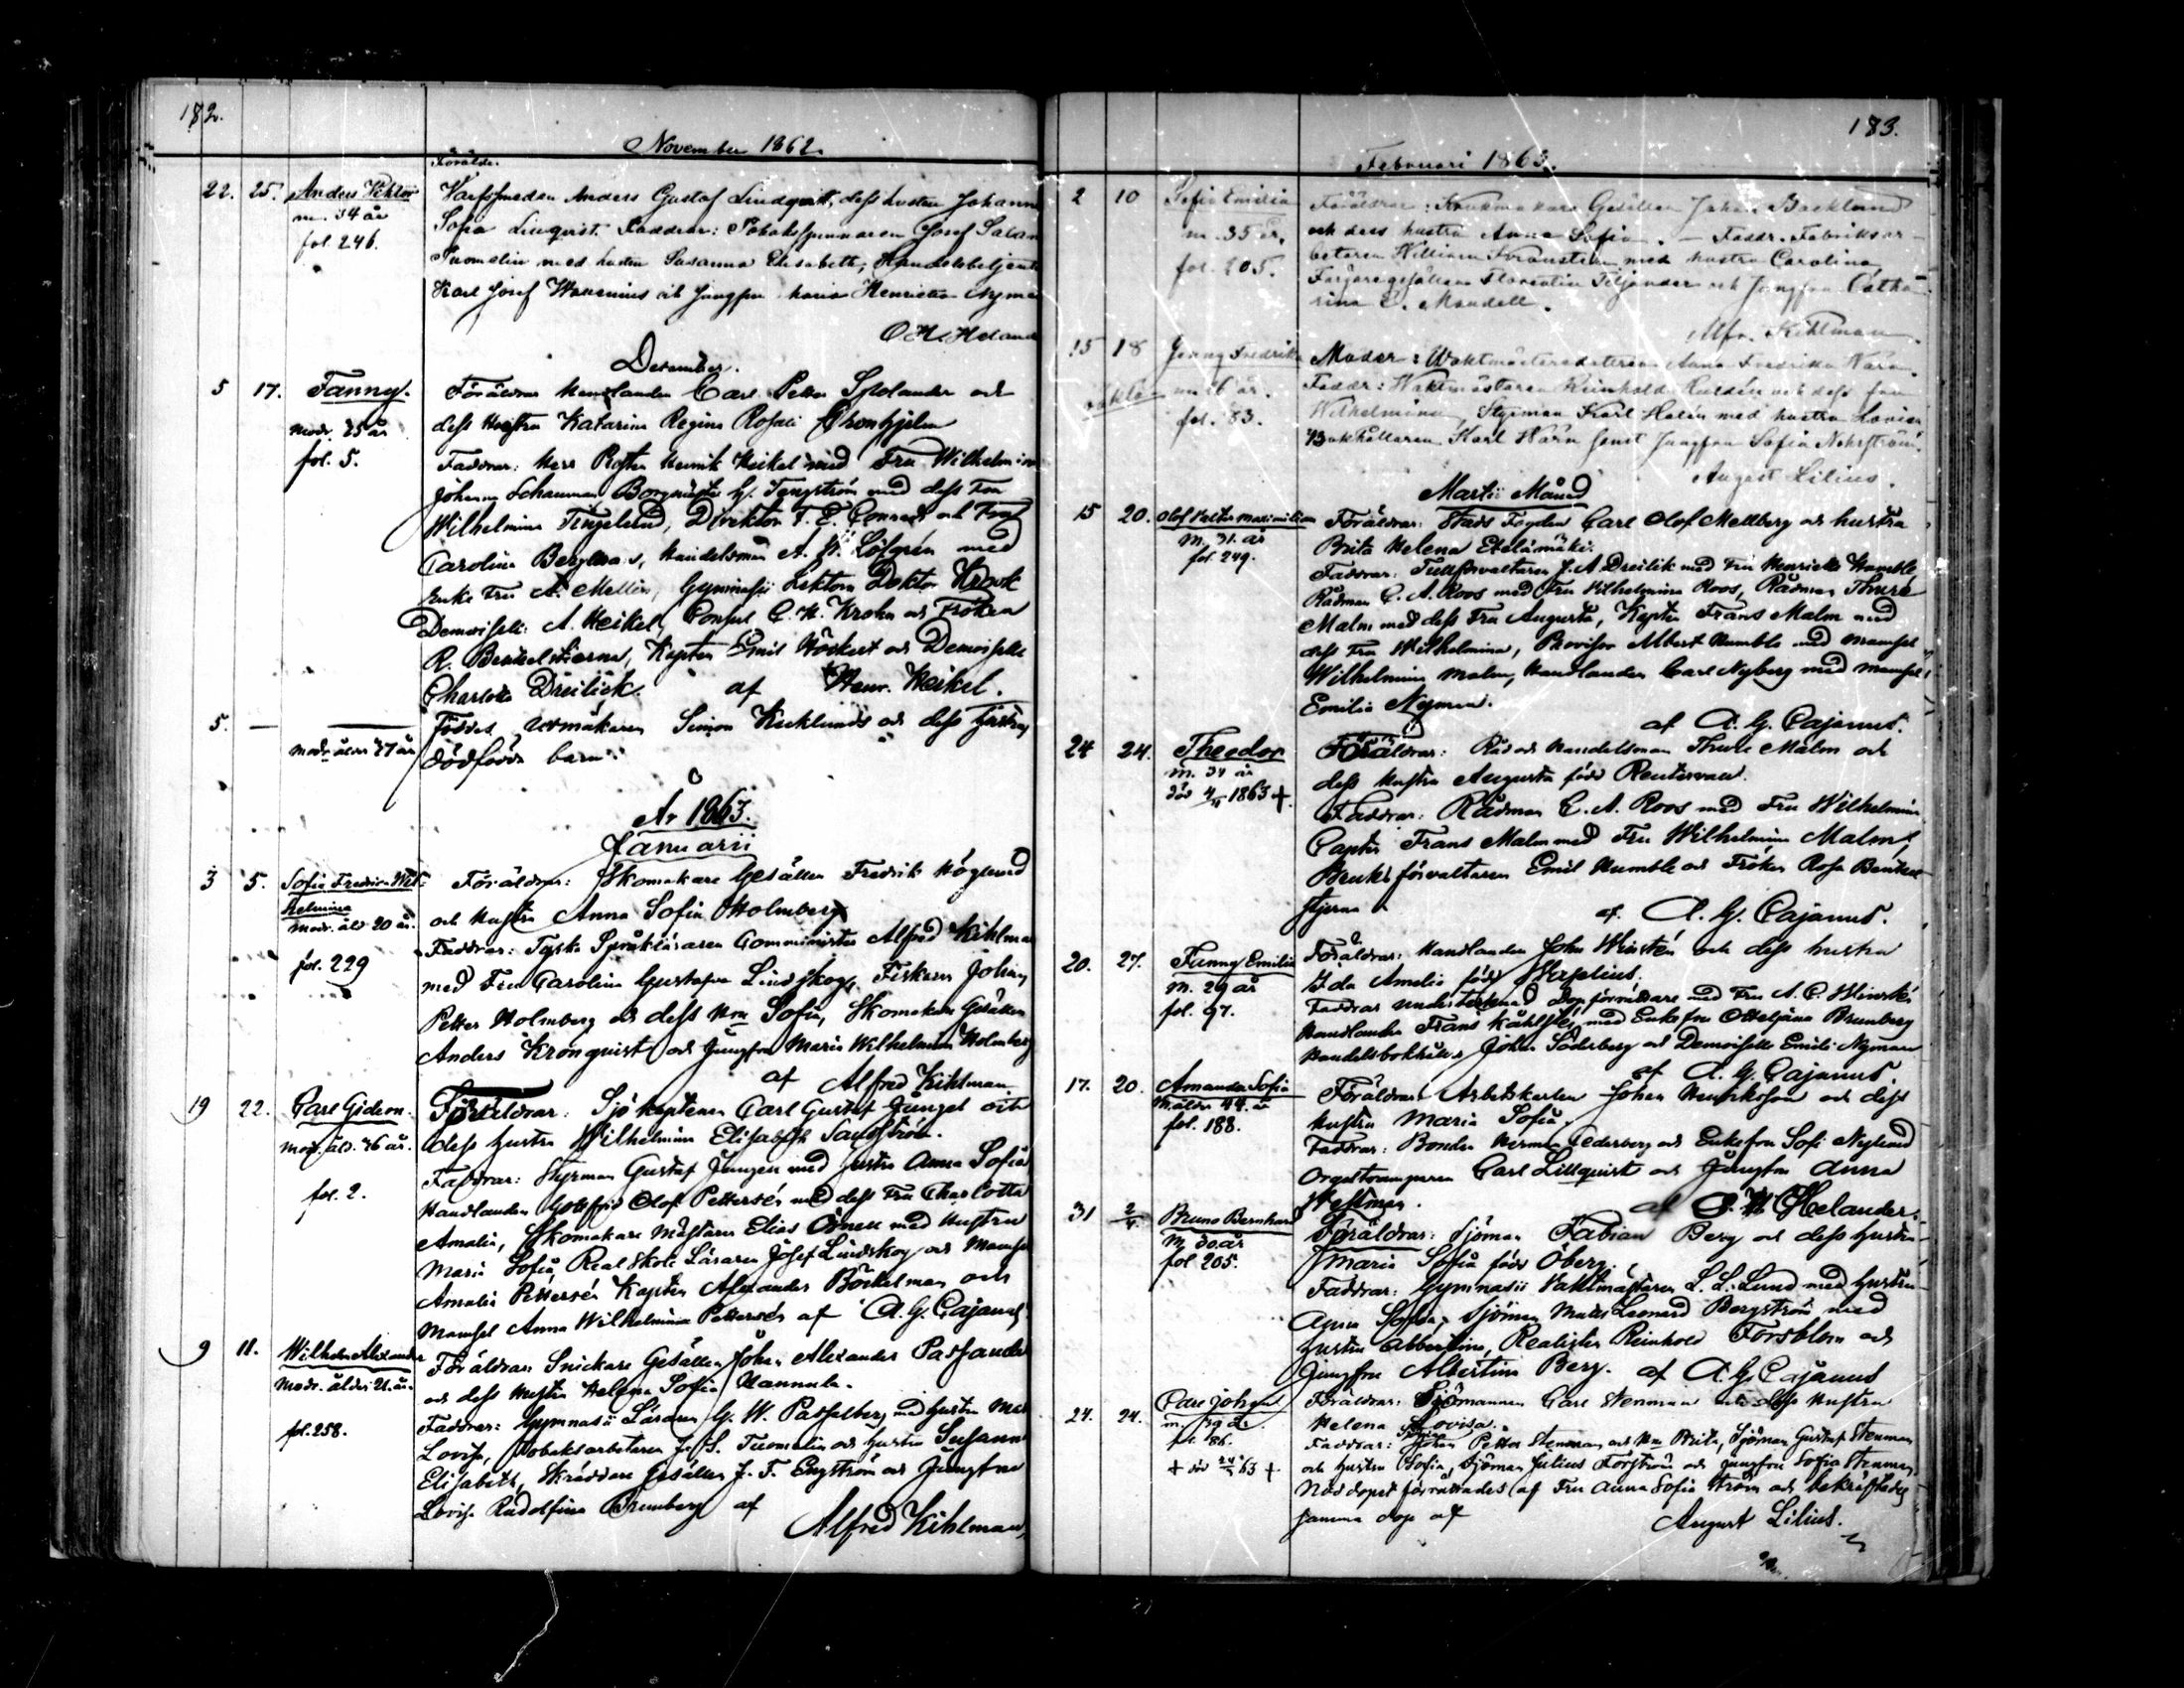 182.
November 1862.
Föräldr.
22. 25. Anders Viktor Varfsmeden Anders Gustaf Lindqvist, dess hustru Johanna
m. 34 år Sofia Linqvist. Faddrar: Tobaksspinnaren Josef
fol. 246. Tuomelin med hustru Susanna Elisabeth, Handelsbetjent
Karl Josef och Jungfru Maria Henrietta Nyman
O H Helander
December.
5 17. Fanny. Föräldrar Handlanden Carl Petter Solander och
modr. 25 år dess Hustru Katarina Regina Rosali Gronhjelm
fol. 5. Faddrar: Herr Henrik Heikel med Fru Wilhelmina
Johanna Schauman Borgmäst. G. Tengström med dess Fru
Wilhelmina Tingelund, Direktor F. E. Conradi och Fru
Carolina Berglund, Handelsman A. W. Löfgren med
Enke Fru A. Mellin, Gymnasii Lektorn Doktor Krook
Demoiselle A. Heikel, Consul C. H. Krohn och Fröken
R. Benkelstierna, Kapten Emil Höckert och Demoiselle
Charlotta Dreilick. af Henr. Heikel.
5. — — Föddes urmakaren Simon och dess hustru
modr. ålder 37 år dödfödda barn
År 1863.
Januarii
3 5. Sofia Fredrica Wil- Föräldrar: Skomakare Gesällen Fredrik Höglund
helmina och Hustru Anna Sofia Holmberg
modr. åld. 20 år. Faddrar: Tyska Språkläraren Comminister Alfred Kihlman
fol. 229 med Fru Carolina Gustafva Lindskog, Fiskaren Johan
Petter Holmberg och dess Hru Sofia, Skomakare Gesällen
Anders Kronqvist och Jungfru Maria Wilhelmina Holmberg
af Alfred Kihlman
19 22. Carl Gideon. Föräldrar: Sjö kaptenen Carl Gustaf Jungel och
modr. åld. 36 år. dess hustru Wilhelmina Elisabeth Sandström.
fol. 2. Faddrar: Styrman Gustaf Jungell med hustru Anna Sofia
Handlanden Gottfrid Olof Petterson med dess Fru Charlotta
Amalia, Skomakare Mästaren Elias Örnell med Hustru
Maria Sofia, Real Skole Läraren Josef Lindskog och Mamsel
Amalia Petterson Kapten Alexander Böckelman och
Mamsel Anna Wilhelmina Petterson af A. G. Cajanus
9 11. Wilhelm Alexander Föräldrar Snickare Gesällen Johan Alexander Passander
modr. ålder 21. år. och dess Hustru Helena Sofia Hannula.
fol. 258. Faddrar: Gymnasii Läraren G. W. Passelberg med hustru
Lovisa, Tobaksarbetaren J. S. Tuomelin och hustru Susanna
Elisabeth, Skräddare Gesällen J. F. Engström och Jungfru
Lovisa Rudolfina Brunberg af
Alfred Kihlman
183.
Februari 1863.
2 10 Sofia Emilia Föräldrar: Krukmakare Gesällen Johan Backlund
m. 35 år. och dess hustru Anna Sofia. — Faddr. Fabriksar-
fol. 205. betaren William med hustru Carolina,
Färgaregesällen Florentin Tiljander och Jungfru Catha-
rina E. Mandell.
Alfr. Kihlman
15 18 Jenny Fredrika Moder: Waktmästaredottern Anna Fredrika Härn
m. 26 år. Faddr: Waktmästaren Reinhold och dess fru
fol. 83. Wilhelmina, Styrman Karl Holm med hustru Lovisa
Bokhållaren Karl Härn samt Jungfru Sofia Nohrström.
August Lilius.
Martii Månad
15 20. Olof Valter Maximilian Föräldrar: Stads Fogden Carl Olof Mellberg och hustru
m. 31. år Brita Helena Etelämäki.
fol. 249. Faddrar: Tullförvaltaren J. A. Dreilik med Fru Henriette Humble
Rådman C. A. Roos med Fru Wilhelmina Roos, Rådman Thure
Malm med dess Fru Augusta, Kapten Frans Malm med
dess Fru Wilhelmina, Provisor Albert Humble med mamsel
Wilhelmina Malm, Handlanden Carl Nyberg med mamsel
Emilia Nyman.
af A. G. Cajanus.
24 24. Theodor Föräldrar: Råd och Handelsman Thure Malm och
m. 34 år dess Hustru Augusta född
död 1863 +. Faddrar: Rådman C. A. Roos med Fru Wilhelmina
Capten Frans Malm med Fru Wilhelmina Malm,
Bruksförvaltaren Emil Humble och Fröken Rosa Benkel-
stjerna
af. A. G. Cajanus.
20. 27. Fanny Emilia Föräldrar: Handlanden John Winstén och dess hustru
m. 29 år Ida Amalia född
fol. 97. Faddrar undertecknad dopförrättare med Fru A. C.
Handlanden Frans med Enkefru Ottiljana Brunberg
Handelsbokhåll. Johan Söderberg och Demoiselle Emili Nyman
af A. G. Cajanus.
17. 20. Amanda Sofia Föräldrar Arbetskarlen Johan Henriksson och dess
M. ålder 44. år hustru Maria Sofia.
fol. 188. Faddrar: Bonden Herman Cederberg och Enkefru Sofi Nylund
Orgeltramparen Carl Lillquist och Jungfru Anna
Westman. af O. H. Helander.
31 2/4. Bruno Bernhard Föräldrar: Sjöman Fabian Berg och dess hustru
M. 30. år Maria Sofia född Öberg.
fol 205. Faddrar: Gymnasii Vaktmästaren L. L. Lund med hustru
Anna Sofia, Sjöman Matts Leonard Bergström med
hustru Albertina, Realisten Reinhold Forsblom och
Jungfru Albertina Berg. af A. G. Cajanus
24. 24. Carl Johan Föräldrar: Sjömannen Carl Stenman och dess Hustru
m. 39 år Helena Lovisa.
fol. 86. Faddrar: Johan Petter Stenman och Hru Brita, Sjöman Gustaf Stenman
+ död 24/3 63 + och hustru Sofia, Sjöman Julius Forström och jungfru Sofia Stenman,
Nöddopet förrättades af Fru Anna Sofia Ström och bekräftades
samma dag af August Lilius.